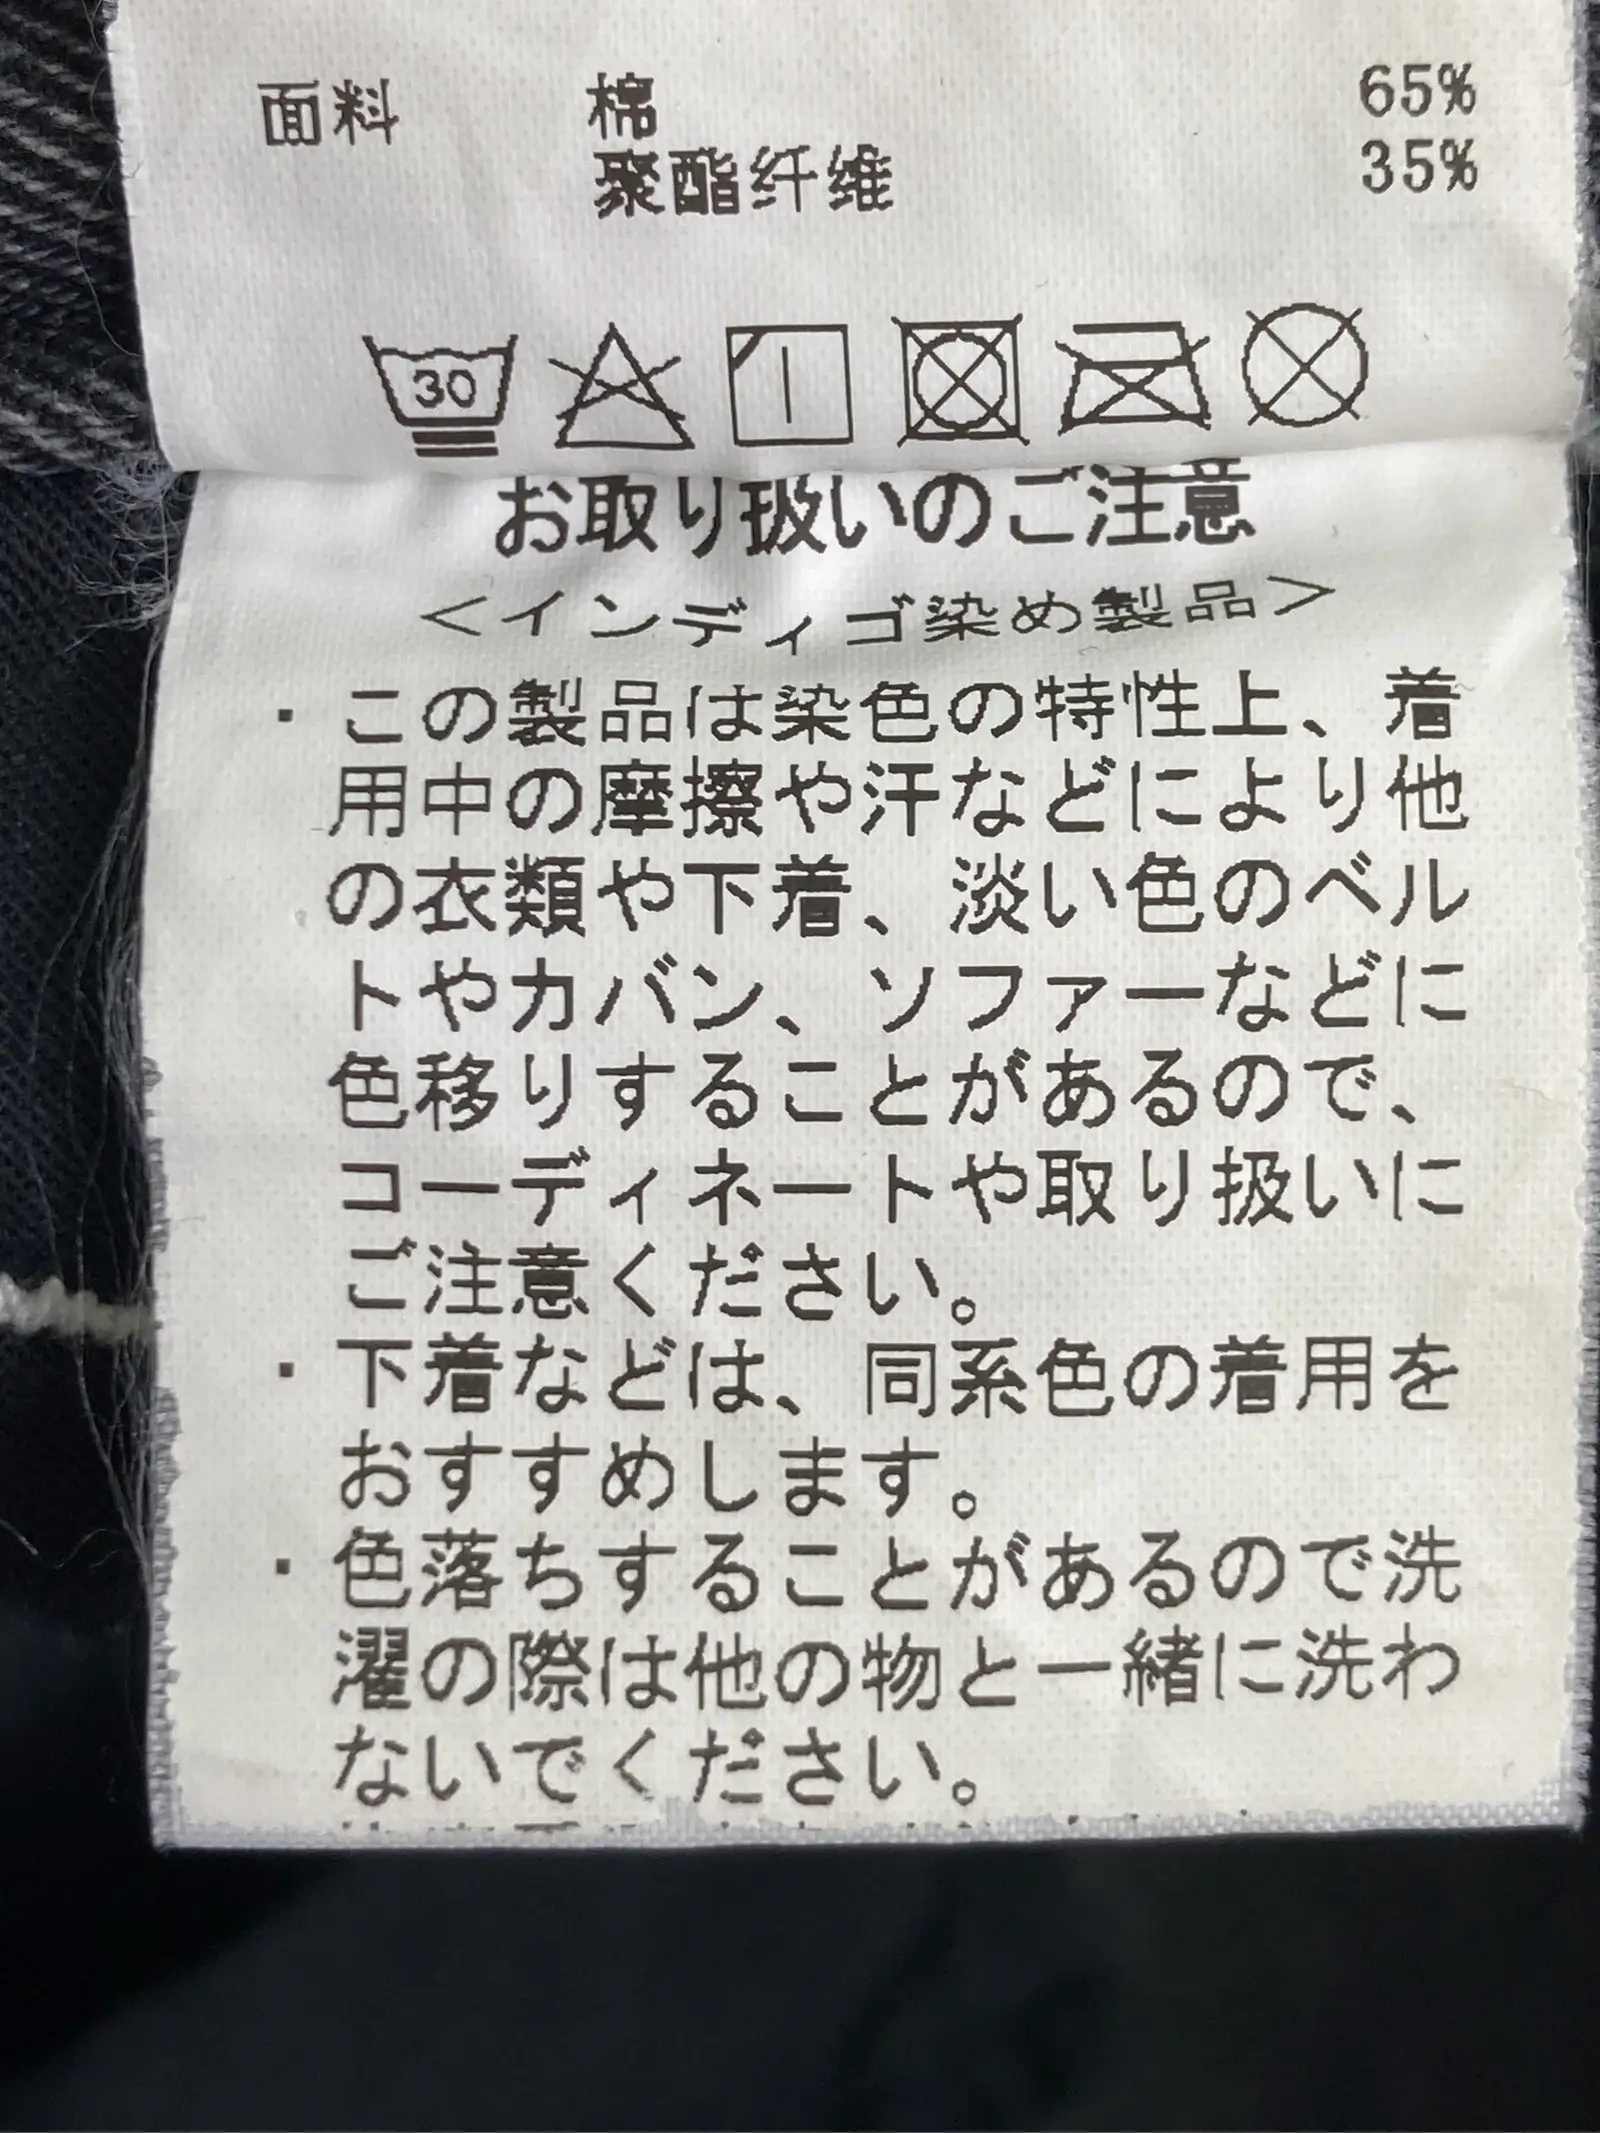 面料 棉 65%
聚酯纤维 35%
30
お取り扱いのご注意
＜インディゴ染め製品＞
・この製品は染色の特性上、着
用中の摩擦や汗などにより他
の衣類や下着、淡い色のベル
トやカバン、ソファーなどに
色移りすることがあるので、
コーディネートや取り扱いに
ご注意ください。
・下着などは、同系色の着用を
おすすめします。
・色落ちすることがあるので洗
濯の際は他の物と一緒に洗わ
ないでください。